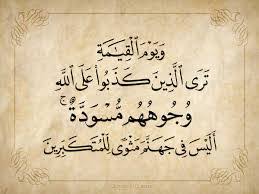 وَيَوْمَ الْقِيَامَةِ
تَرَى الَّذِينَ كَذَبُوا عَلَى اللَّهِ
وُجُوهُهُم مُّسْوَدَّةٌ ۚ
أَلَيْسَ فِي جَهَنَّمَ مَثْوًى لِّلْمُتَكَبِّرِينَ